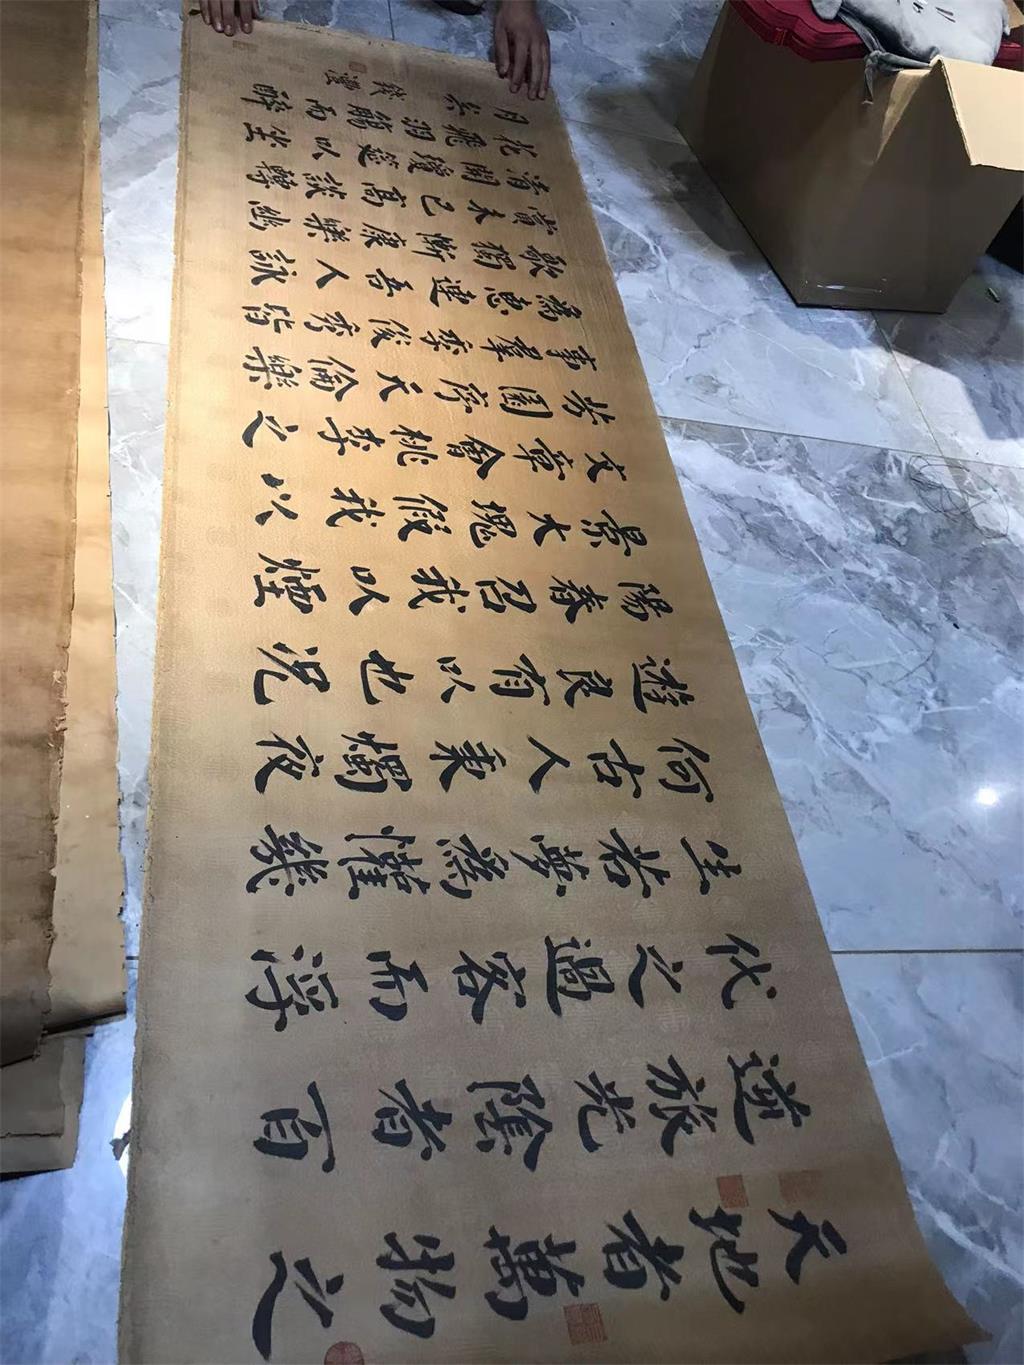 天地者萬物之
逆旅光陰者百
代之過客而浮
生若夢爲懽幾
何古人秉燭夜
遊良有以也況
陽春召我以煙
景大塊假我以
文章會桃李之
芳園序天倫樂
事羣季俊秀皆
為惠連吾人詠
歌獨慚康樂幽
賞未已高談轉
清開瓊筵以坐
花飛羽觴而醉
月